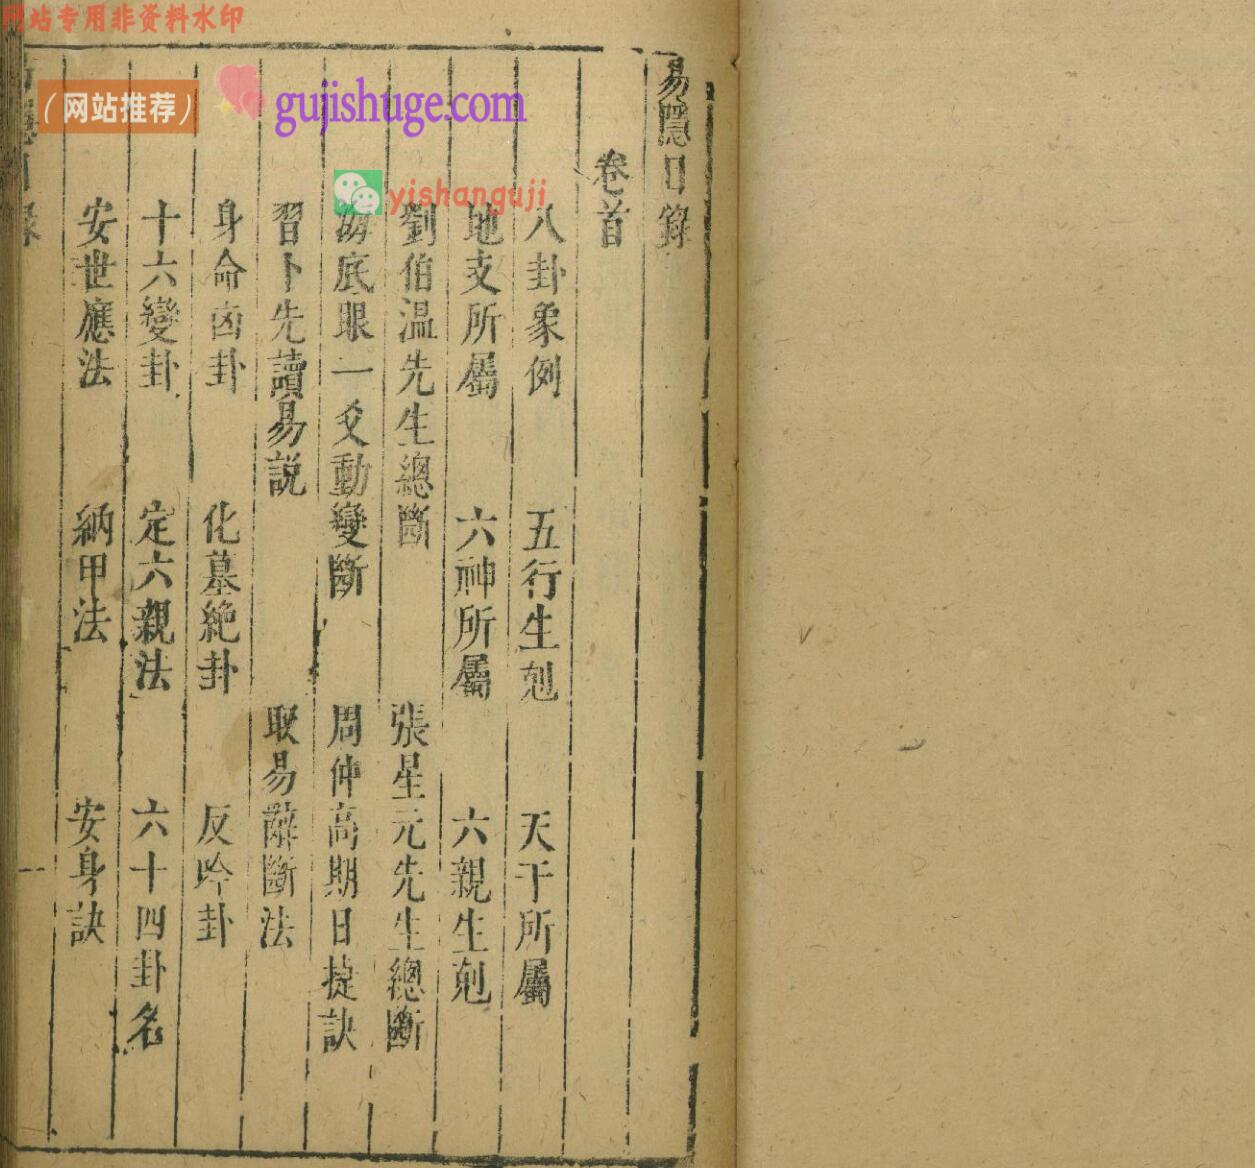 网站专用非资料水印
（网站推荐）
gujishuge.com
yishanguji
易隱目錄
卷首
八卦象例 五行生剋 天干所屬
地支所屬 六神所屬 六親生剋
劉伯温先生總斷 張星元先生總斷
海底眼一爻動變斷 周仲高期日捷訣
習卜先讀易説 取易辭斷法
身命凶卦 化墓絶卦 反吟卦
十六變卦 定六親法 六十四卦名
安世應法 納甲法 安身訣
一